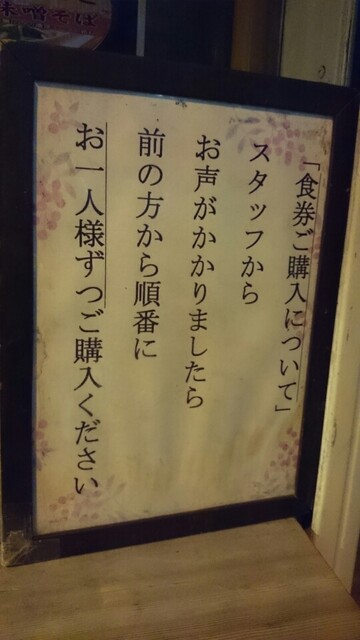 「食券ご購入について」
スタッフから
お声がかかりましたら
前の方から順番に
お一人様ずつご購入ください
味噌そば